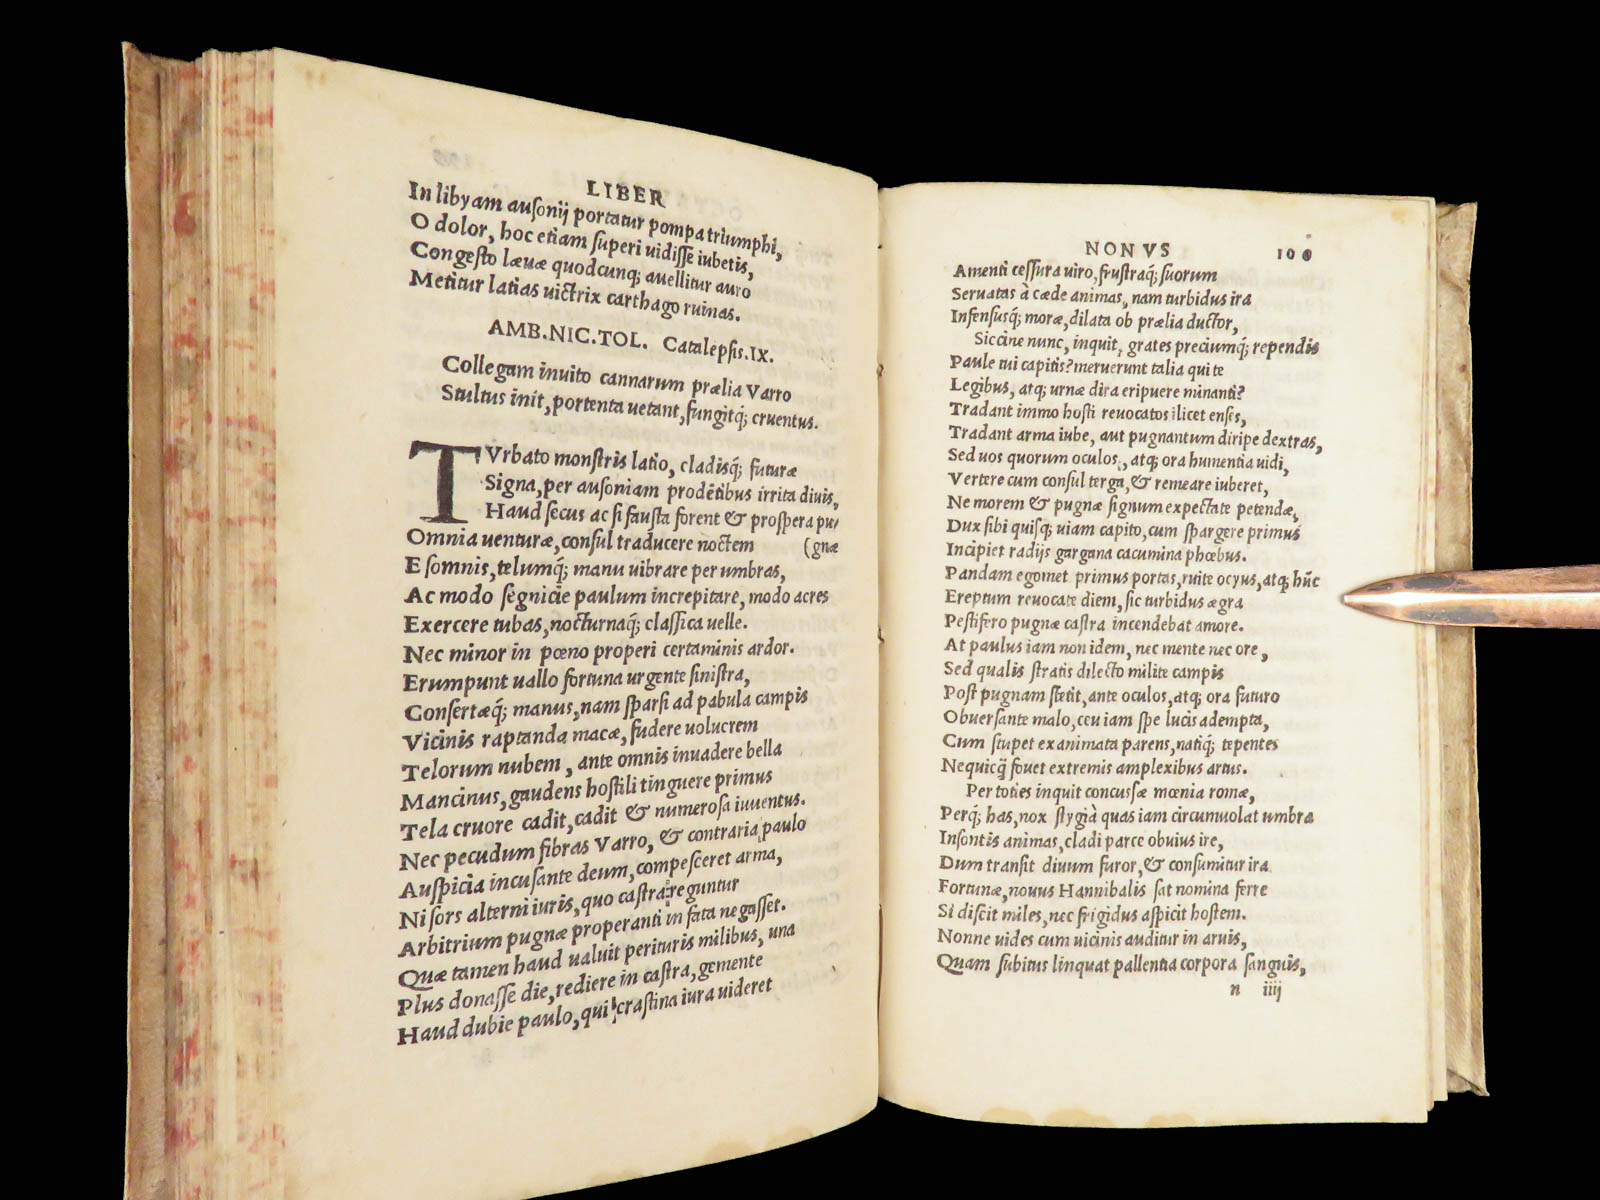 LIBER
In libyam ausonij portatur pompa triumphi,
O dolor, hoc etiam superi uidisse iubetis,
Congesto læuæ quodcunq; auellitur auro
Metitur latias uictrix carthago ruinas.
AMB.NIC.TOL. Catalepsis.IX.
Collegam inuito cannarum prælia Varro
Stultus init, portenta uetant, fungitq; cruentus.
TVrbato monstris latio, cladisq; futuræ
Signa, per ausoniam prodētibus irrita diuis,
Haud secus ac si fausta forent & prospera pu/
Omnia uenturæ, consul traducere noctem (gnæ
E somnis, telumq; manu uibrare per umbras,
Ac modo segnicie paulum increpitare, modo acres
Exercere tubas, nocturnaq; classica uelle.
Nec minor in pœno properi certaminis ardor.
Erumpunt uallo fortuna urgente sinistra,
Consertæq; manus, nam sparsi ad pabula campis
Vicinis raptanda macæ, fudere uolucrem
Telorum nubem, ante omnis inuadere bella
Mancinus, gaudens hostili tinguere primus
Tela cruore cadit, cadit & numerosa iuuentus.
Nec pecudum fibras Varro, & contraria paulo
Auspicia incusante deum, compesceret arma,
Ni sors alterni iuris, quo castra reguntur
Arbitrium pugnæ properanti in fata negasset.
Quæ tamen haud ualuit perituris milibus, una
Plus donasse die, rediere in castra, gemente
Haud dubie paulo, qui crastina iura uideret
NONVS 100
Amenti cessura uiro, frustraq; suorum
Seruatas à cæde animas, nam turbidus ira
Infensusq; moræ, dilata ob prælia ductor,
Siccine nunc, inquit, grates preciumq; rependis
Paule tui capitis? meruerunt talia qui te
Legibus, atq; urnæ dira eripuere minanti?
Tradant immo hosti reuocatos ilicet enses,
Tradant arma iube, aut pugnantum diripe dextras,
Sed uos quorum oculos, atq; ora humentia uidi,
Vertere cum consul terga, & remeare iuberet,
Ne morem & pugnæ signum expectate petendæ,
Dux sibi quisq; uiam capito, cum spargere primus
Incipiet radijs gargana cacumina phœbus.
Pandam egomet primus portas, ruite ocyus, atq; hūc
Ereptum reuocate diem, sic turbidus ægra
Pestifero pugnæ castra incendebat amore.
At paulus iam non idem, nec mente nec ore,
Sed qualis stratis dilecto milite campis
Post pugnam stetit, ante oculos, atq; ora futuro
Obuersante malo, ceu iam spe lucis adempta,
Cum stupet exanimata parens, natiq; tepentes
Nequicq̃ fouet extremis amplexibus artus.
Per toties inquit concussæ mœnia romæ,
Perq; has, nox stygià quas iam circumuolat umbra
Insontis animas, cladi parce obuius ire,
Dum transit diuum furor, & consumitur ira
Fortunæ, nouus Hannibalis sat nomina ferre
Si discit miles, nec frigidus aspicit hostem.
Nonne uides cum uicinis auditur in aruis,
Quam subitus linquat pallentia corpora sanguis,
n iiij